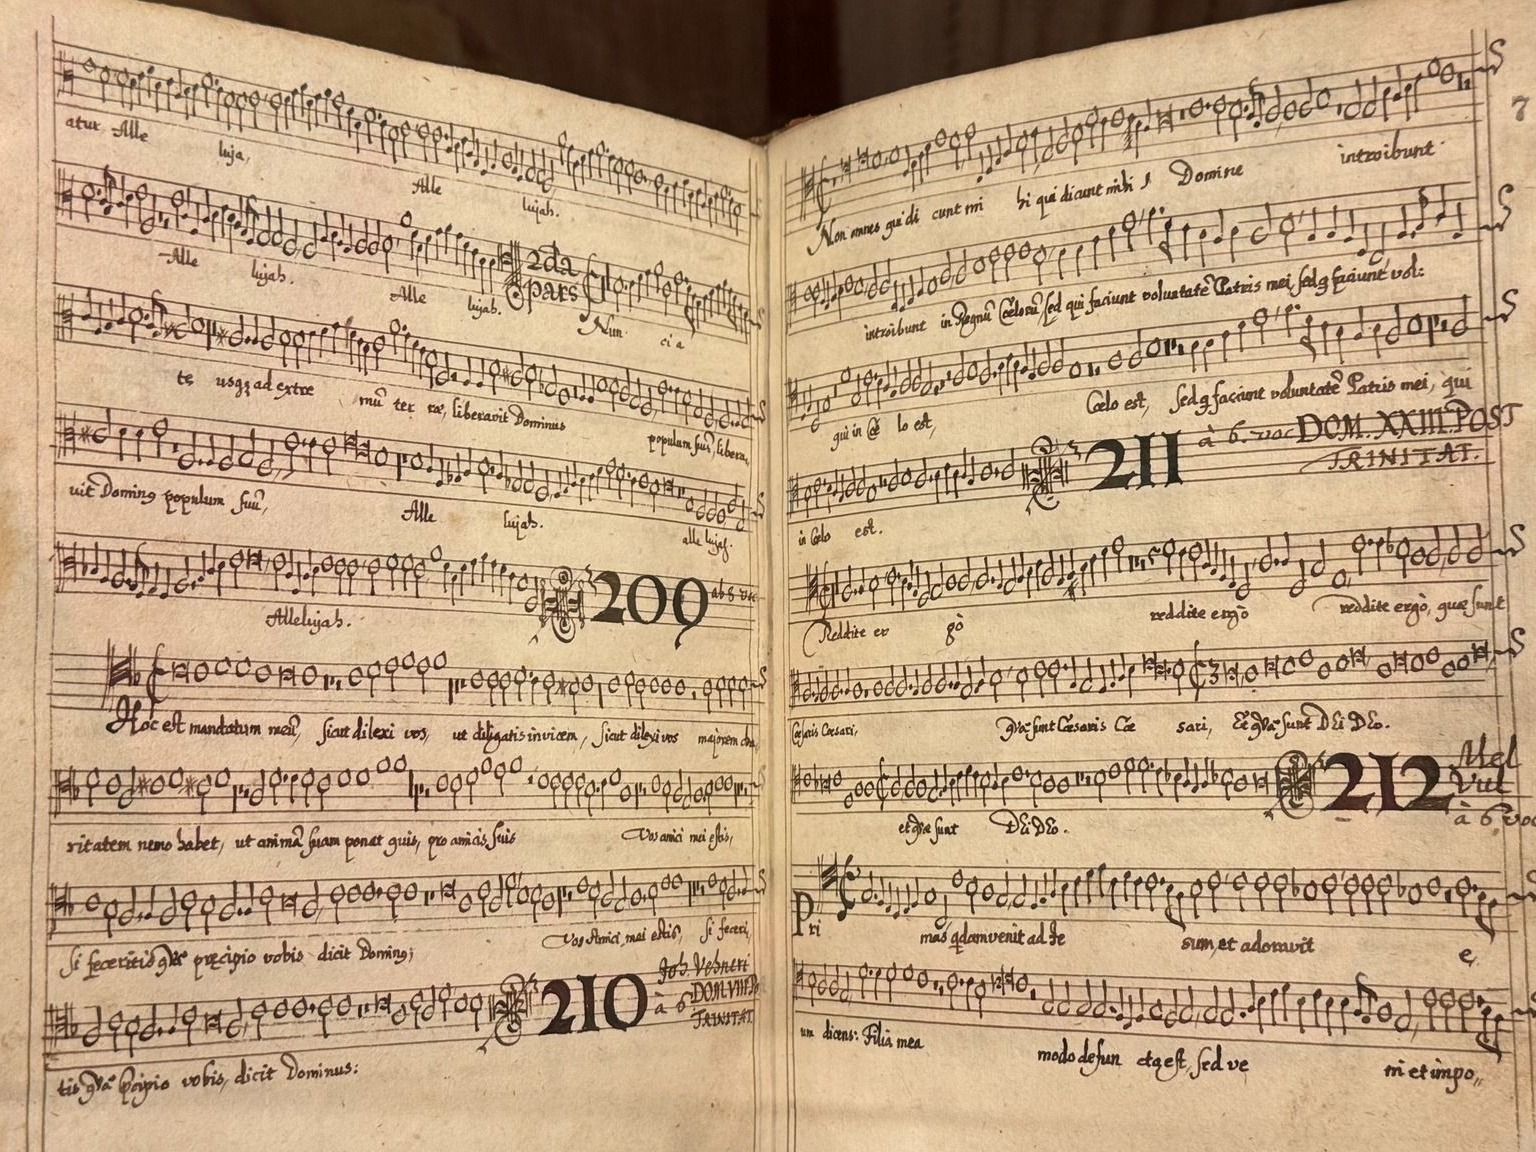 atur Alle luja, Alle lujah.
Alle lujah. Alle lujah. 2da pars Nun ci a
te usq; ad extre mũ ter ræ, liberavit Dominus populum suũ, libera,
vit Domin9 populum suũ, Alle lujah. alle lujah.
Allelujah. 209 ab 8 voc
Hoc est mandatum meũ, sicut dilexi vos, ut diligatis invicem, sicut dilexi vos majorem cha
ritatem nemo habet, ut animã suam ponat quis, pro amicis suis Vos amici mei estis,
si feceritis quæ præcipio vobis dicit Domin9; Vos amici mei estis, si feceri,
tis quæ præcipio vobis, dicit Dominus: 210 à 6 Joh. Vehneri DOM. VIII P. TRINITAT
7
Non omnes qui di cunt mi hi qui dicunt mihi Domine introibunt
introibunt in Regnũ Cœlorũ sed qui faciunt voluntatẽ Patris mei, sed q faciunt vol:
qui in Cœ lo est, Cœlo est, sed q faciunt voluntatẽ Patris mei, qui
in Cœlo est. 211 à 6. voc DOM. XXIII. POST TRINITAT.
Reddite er gò reddite ergò reddite ergò, quæ sunt
Cæsaris Cæsari, quæ sunt Cæsaris Cæ sari, Et quæ sunt DEi DEo.
et quæ sunt DEi DEo. 212 Mel Vul à 6 voc
Pri mas qdam venit ad Je sum, et adoravit e,
um dicens: Filia mea modo defun cta est, sed ve ni et impo,,